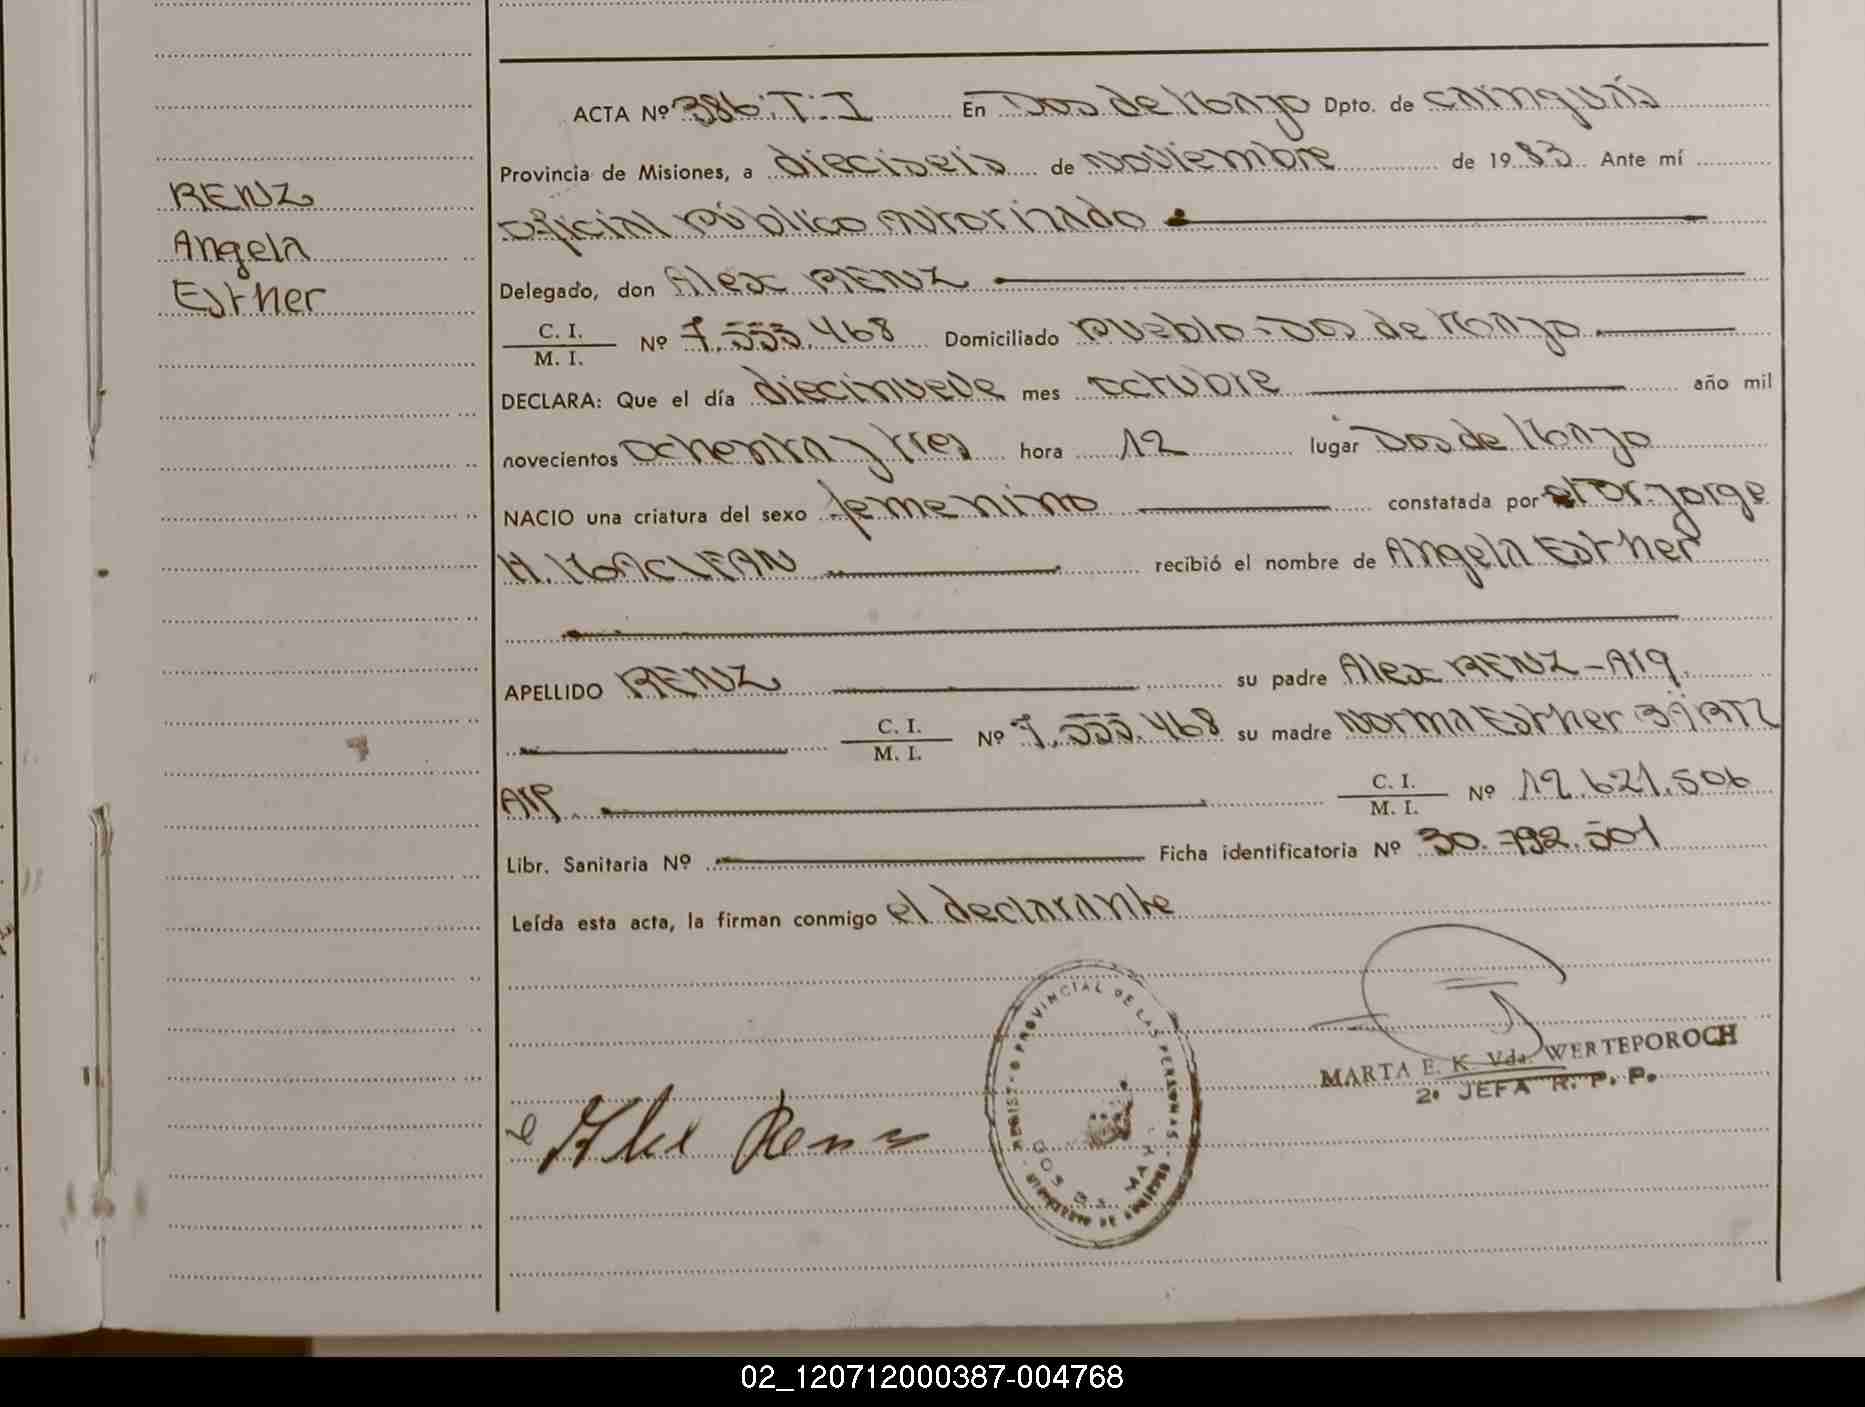 RENZ
Angela
Esther
ACTA Nº 386.T.I En Dos de Mayo Dpto. de Cainguás
Provincia de Misiones, a dieciseis de noviembre de 1983 Ante mí
Oficial Público Autorizado
Delegado, don Alex RENZ
C. I.
M. I. Nº 7.555.468 Domiciliado Pueblo-Dos de Mayo
DECLARA: Que el día diecinueve mes octubre año mil
novecientos Ochenta y tres hora 12 lugar Dos de Mayo
NACIO una criatura del sexo femenino constatada por el Dr. Jorge
H. MACLEAN recibió el nombre de Angela Esther
APELLIDO RENZ su padre Alex RENZ-Arg.
C. I.
M. I. Nº 7.555.468 su madre Norma Esther
Arg. C. I.
M. I. Nº 12.621.506
Libr. Sanitaria Nº Ficha identificatoria Nº 30.792.501
Leída esta acta, la firman conmigo el declarante
Alex Renz
REGIST PROVINCIAL DE LAS PERSONAS
DOS DE MAYO
MARTA E. K. Vda. WERTEPOROCH
2º JEFA R. P. P.
02_120712000387-004768